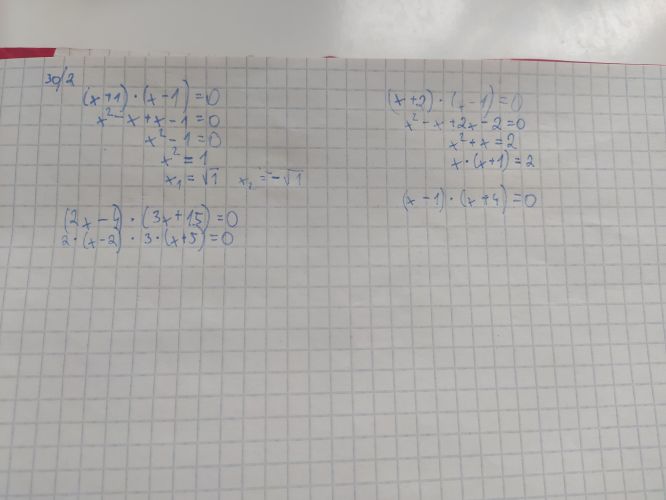 30/2
(x+1)·(x-1)=0
x²-x+x-1=0
x²-1=0
x²=1
x₁=√1 x₂=-√1
(2x-4)·(3x+15)=0
2·(x-2)·3·(x+5)=0
(x+2)·(x-1)=0
x²-x+2x-2=0
x²+x=2
x·(x+1)=2
(x-1)·(x+4)=0